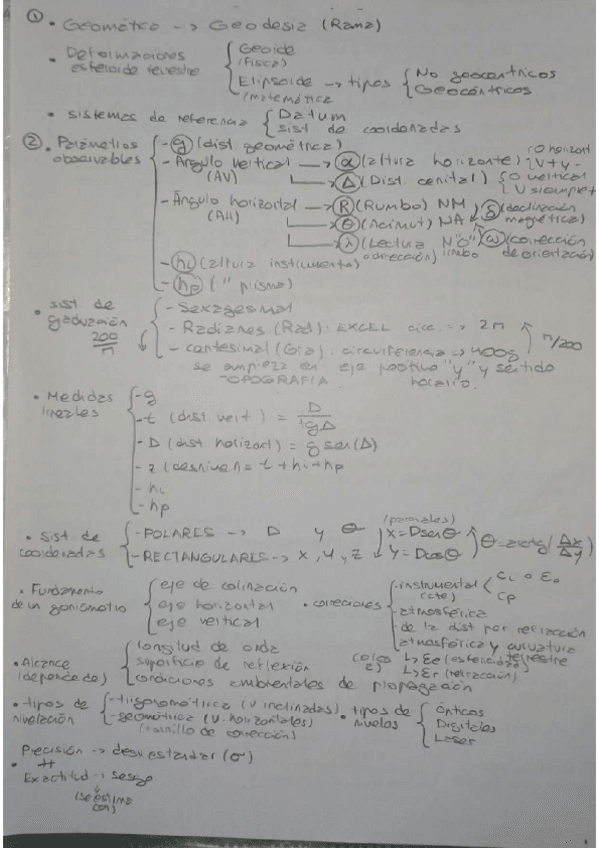 ① • Geomática --> Geodesia (Rama)
• Deformaciones esferoide terrestre { Geoide (Física)
Elipsoide (matemática --> tipos { No geocéntricos
Geocéntricos
• sistemas de referencia { Datum
sist de coordenadas
② • Parámetros observables { - g (dist geométrica)
- Ángulo vertical (AV) -> α (altura horizonte) { O horizont
V + y -
-> Δ (Dist. cenital) { O vertical
V siempre +
- Ángulo horizontal (AH) -> R (Rumbo) NM
-> θ (Acimut) NA
δ (declinación magnética)
-> λ (Lectura o dirección) N "O" limbo
ω (corrección de orientación)
- hi (altura instrumento)
- hp ( " prisma)
• sist de graduación { - Sexagesimal
- Radianes (Rad): EXCEL circ. => 2π
- centesimal (Gra): circunferencia => 400g
200/π
π/200
se empieza en eje positivo "y" y sentido horario.
TOPOGRAFIA
• Medidas lineales { - g
- t (dist. vert) = D / tgΔ
- D (dist. horizont) = g sen(Δ)
- z (desnivel) = t + hi - hp
- hi
- hp
• Sist de coordenadas { - POLARES -> D y θ
- RECTANGULARES -> x, y, z
(parciales)
X = Dsenθ
Y = Dcosθ
θ = arctg(Δx/Δy)
• Fundamento de un goniometro { eje de colimación
eje horizontal
eje vertical
• correciones { - instrumental (cte) < Ci o Eo
Cp
- atmosférica
- de la dist por refracción atmosférica y curvatura terrestre
↳ Ee (esfericidad)
↳ Er (refracción)
• Alcance (depende de) { longitud de onda
superficie de reflexión
condiciones ambientales de propagación
• tipos de nivelación { - trigonométrica (V inclinadas)
- geométrica (V. horizontales)
(tornillo de corrección)
• tipos de niveles { Ópticos
Digitales
Laser
Precisión -> desv estandar (σ)
• #
Exactitud -> sesgo.
(se estima con)